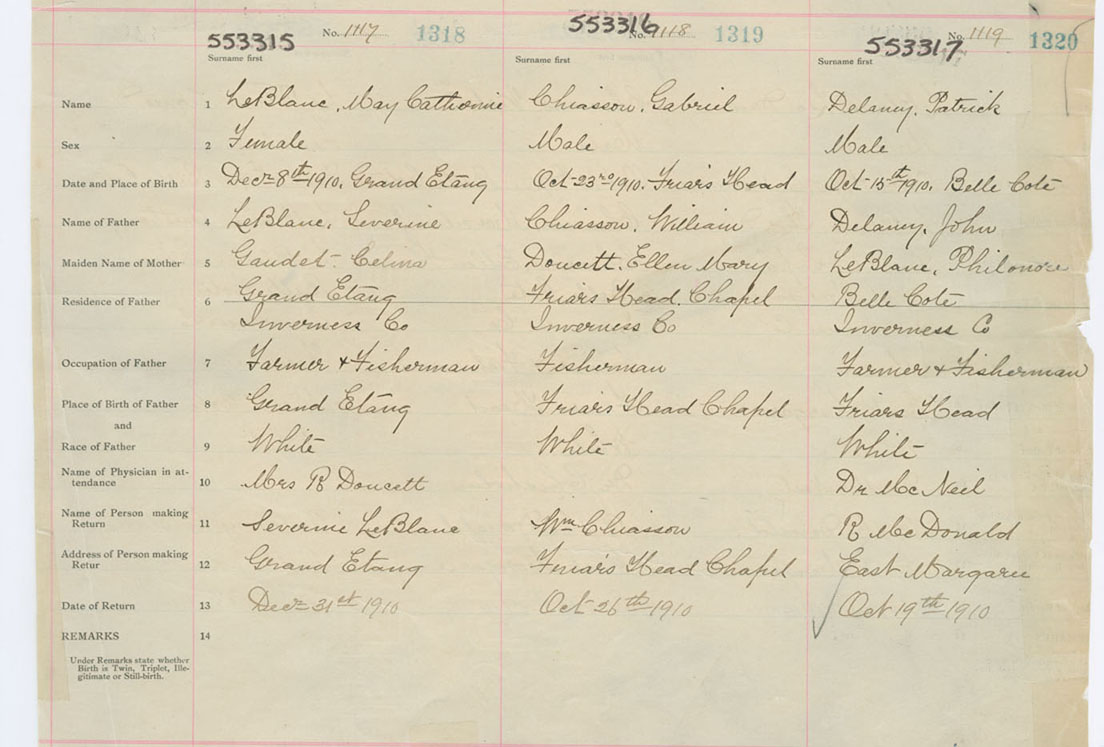 553315 No. 1117 1318 553316 No. 1118 1319 553317 No. 1119 1320
Surname first Surname first Surname first
Name 1 LeBlanc, May Catherine Chiasson, Gabriel Delaney, Patrick
Sex 2 Female Male Male
Date and Place of Birth 3 Decr 8th 1910, Grand Etang Oct 23rd 1910, Friar's Head Oct 15th 1910, Belle Cote
Name of Father 4 LeBlanc, Severine Chiasson, William Delaney, John
Maiden Name of Mother 5 Gaudet Celina Doucett, Ellen Mary LeBlanc,
Residence of Father 6 Grand Etang Friars Head, Chapel Belle Cote
Inverness Co Inverness Co Inverness Co
Occupation of Father 7 Farmer & Fisherman Fisherman Farmer & Fisherman
Place of Birth of Father 8 Grand Etang Friars Head Chapel Friars Head
and
Race of Father 9 White White White
Name of Physician in at-
tendance 10 Mrs R Doucett Dr McNeil
Name of Person making
Return 11 Severine LeBlanc Wm Chiasson R McDonald
Address of Person making
Retur 12 Grand Etang Friars Head Chapel East Margaree
Date of Return 13 Decr 31st 1910 Oct 26th 1910 Oct 19th 1910
REMARKS 14
Under Remarks state whether
Birth is Twin, Triplet, Ille-
gitimate or Still-birth.